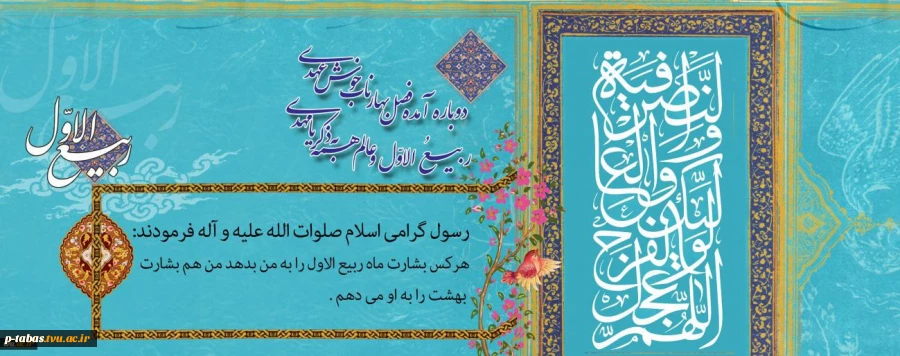 ربیع الاوّل
دوباره آمده فصل بهار ناب خوش عهدی
ربیعُ الاوّل و عالم همه به ذکر یا مهدی
رسول گرامی اسلام صلوات الله علیه و آله فرمودند:
هرکس بشارت ماه ربیع الاول را به من بدهد من هم بشارت
بهشت را به او می دهم .
اللّهُمَّ عَجِّل
لِوَلیِّکَ الفَرَج
وَالعافیةَ وَالنَّصر
p-tabas.tvu.ac.ir